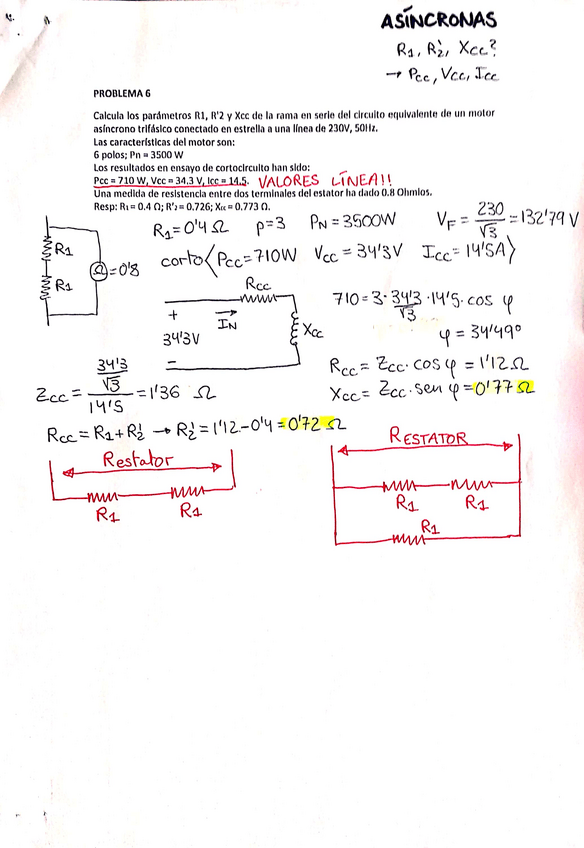 ASÍNCRONAS
R1, R'2, Xcc?
→ Pcc, Vcc, Icc
PROBLEMA 6
Calcula los parámetros R1, R'2 y Xcc de la rama en serie del circuito equivalente de un motor
asíncrono trifásico conectado en estrella a una línea de 230V, 50Hz.
Las características del motor son:
6 polos; Pn = 3500 W
Los resultados en ensayo de cortocircuito han sido:
Pcc = 710 W, Vcc = 34.3 V, Icc = 14.5. VALORES LÍNEA!!
Una medida de resistencia entre dos terminales del estator ha dado 0.8 Ohmios.
Resp: R1 = 0.4 Ω; R'2 = 0.726; Xcc = 0.773 Ω.
R1 = 0'4 Ω p=3 PN = 3500W VF = 230/√3 = 132'79 V
R1
R1
Ω = 0'8
corto⟨Pcc = 710W Vcc = 34'3V Icc = 14'5A⟩
Rcc
+
34'3V
−
IN
Xcc
710 = 3 · 34'3/√3 · 14'5 · cos φ
φ = 34'49º
Zcc = (34'3/√3)/14'5 = 1'36 Ω
Rcc = Zcc · cos φ = 1'12 Ω
Xcc = Zcc · sen φ = 0'77 Ω
Rcc = R1 + R'2 → R'2 = 1'12 - 0'4 = 0'72 Ω
Restator
R1 R1
RESTATOR
R1 R1
R1